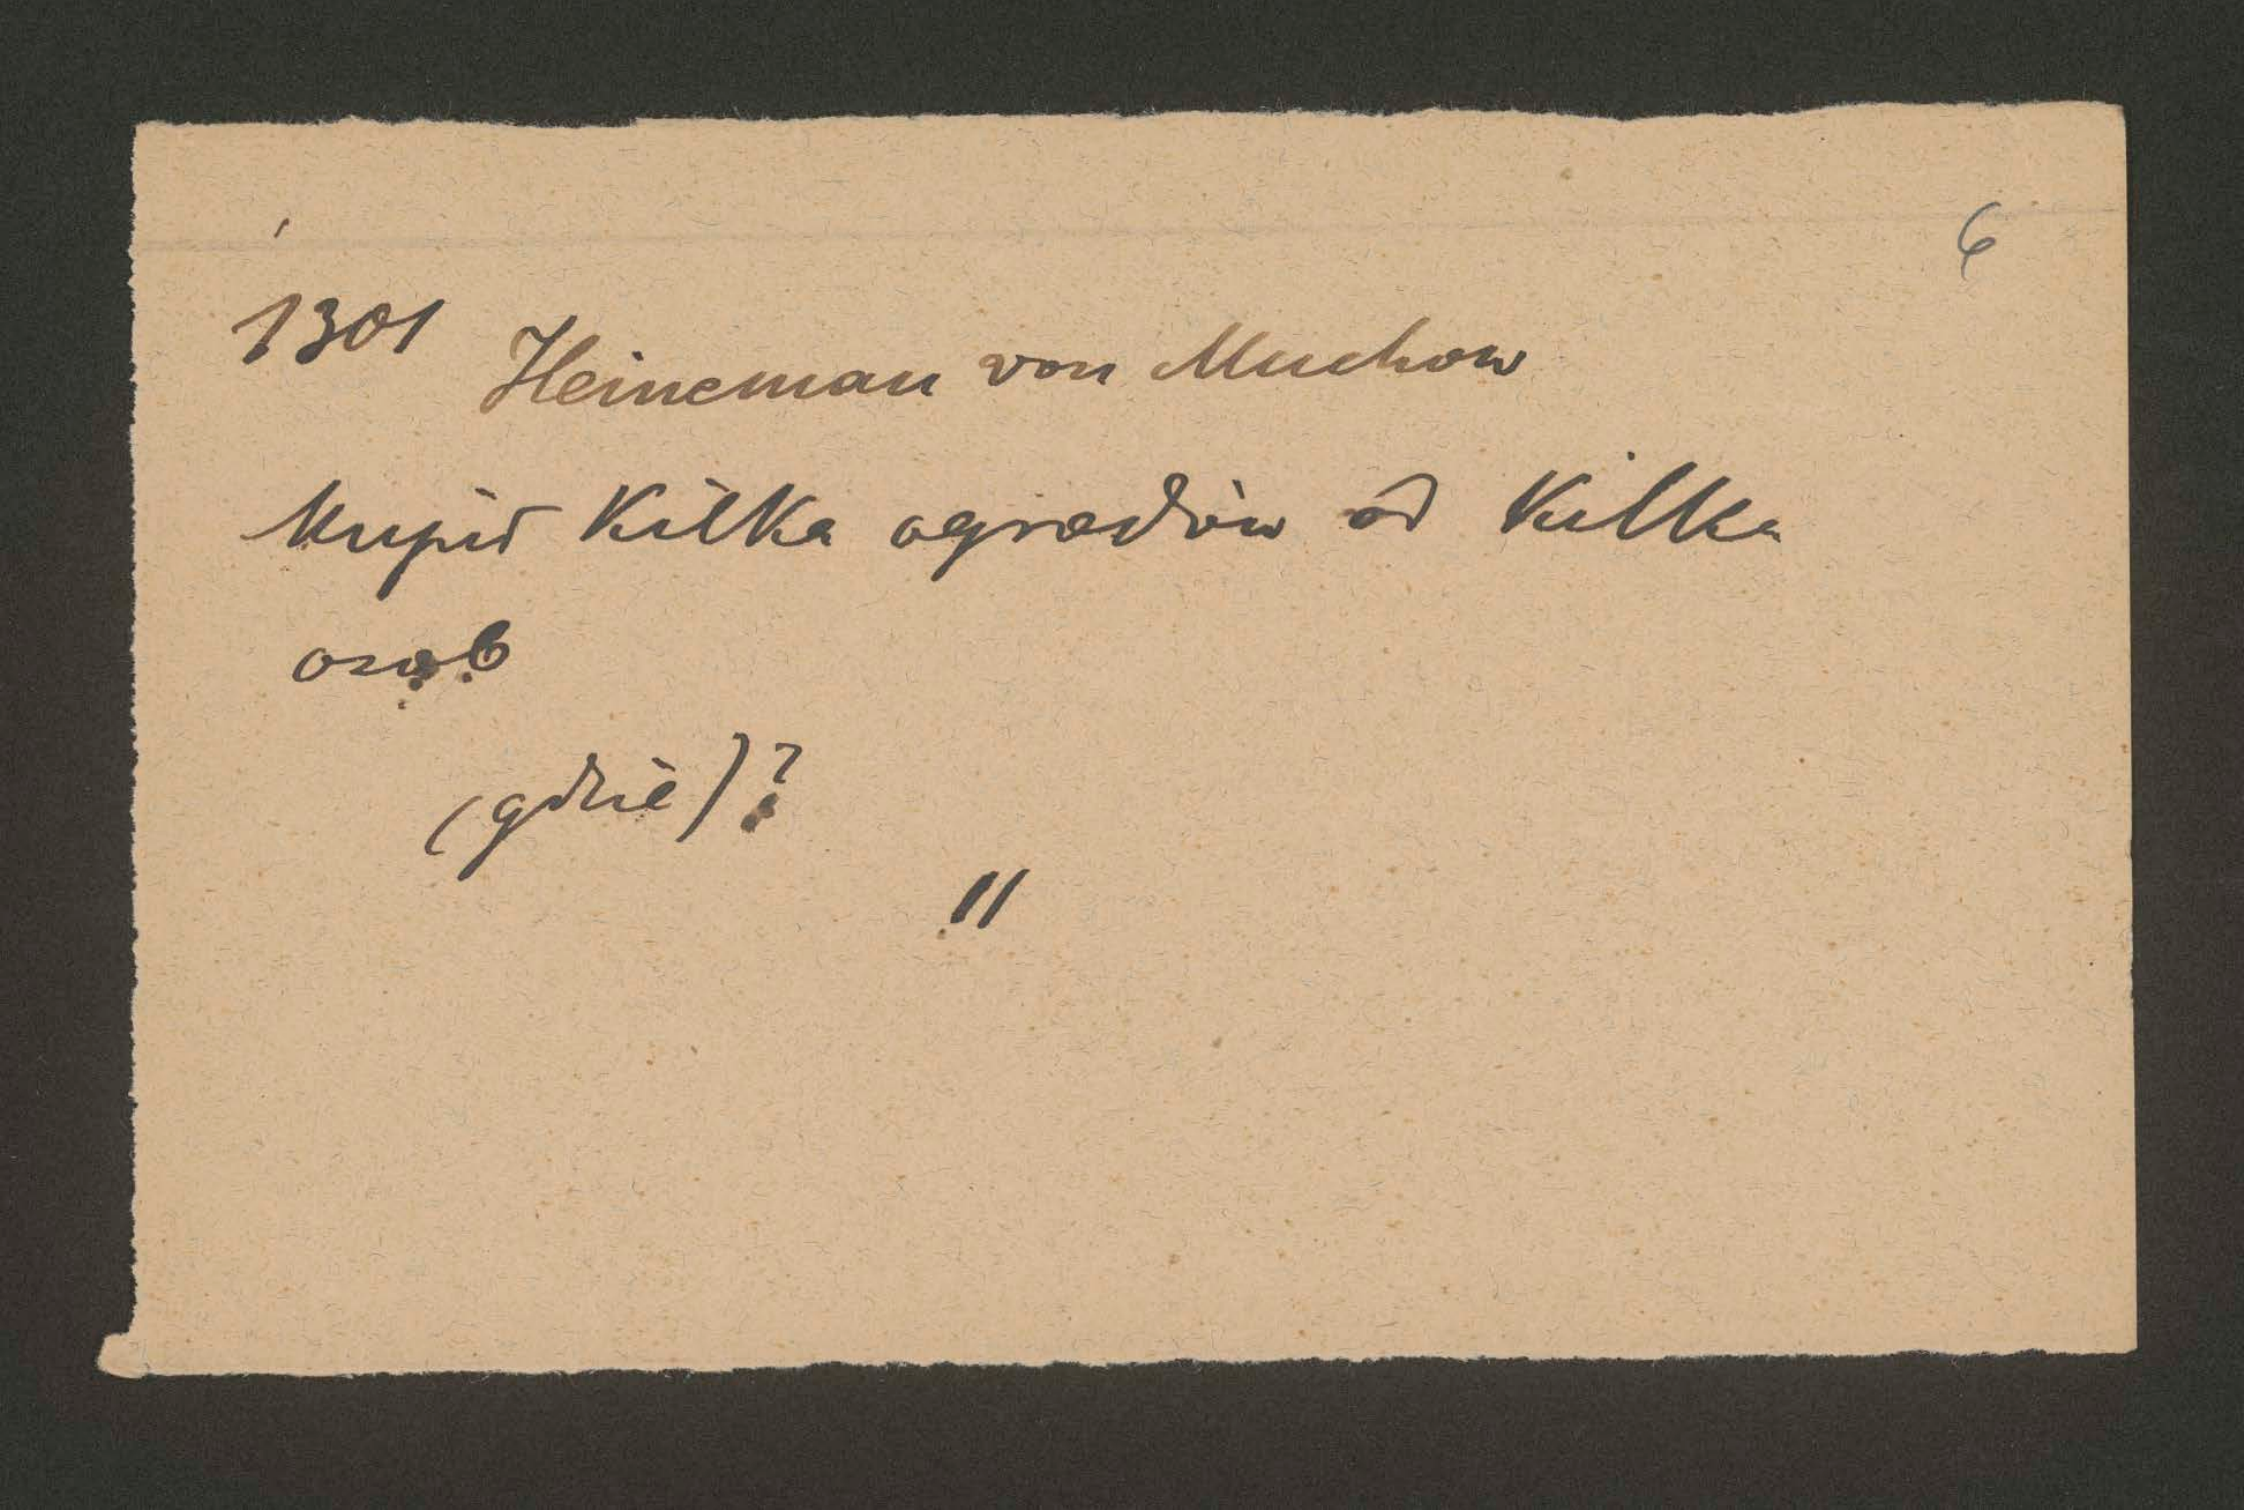 6
1301 Heineman von Muchow
kupił kilka ogrodów od kilka
osób
(gdzie)?
"